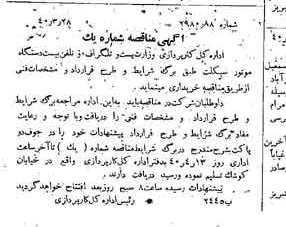 شماره ۲۹۸۰۸۸ ۴۰/۳/۲۸
آگهی مناقصه شماره یک
اداره کل کارپردازی وزارت پست و تلگراف و تلفن بیست دستگاه
موتور سیکلت طبق برگ شرایط و طرح قرارداد و مشخصات فنی
از طریق مناقصه خریداری مینماید
داوطلبان شرکت در مناقصه باید به این اداره مراجعه برگ شرایط
و طرح قرارداد و مشخصات فنی را دریافت و با توجه و رعایت
مفاد برگ شرایط و طرح قرارداد پیشنهادات خود را در جوف دو
پاکت بشرح مندرج در برگ شرایط مناقصه شماره ( یک ) تا آخر ساعت
اداری روز ۴۰/۴/۱۳ بدفتر اداره کل کارپردازی واقع در خیابان
کوشک تسلیم نموده و رسید دریافت دارند
پیشنهادات رسیده ساعت ۸ صبح روز بعد افتتاح خواهد گردید
رئیس اداره کل کارپردازی